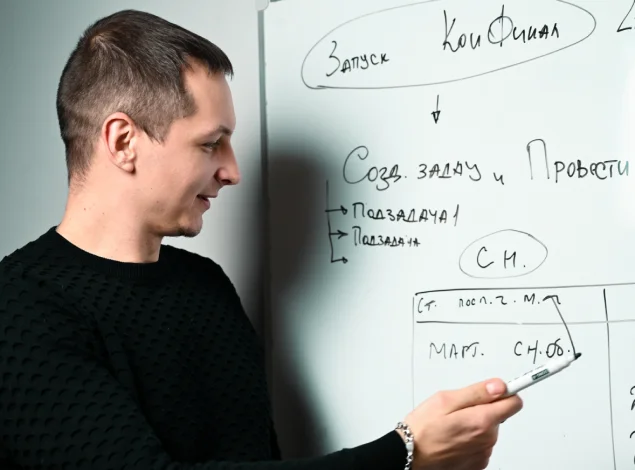 Запуск КонФинал
Созд. задачу и Провести
Подзадача 1
Подзадача
СН.
Ст. посл. г. М.
Март. СН.Об.